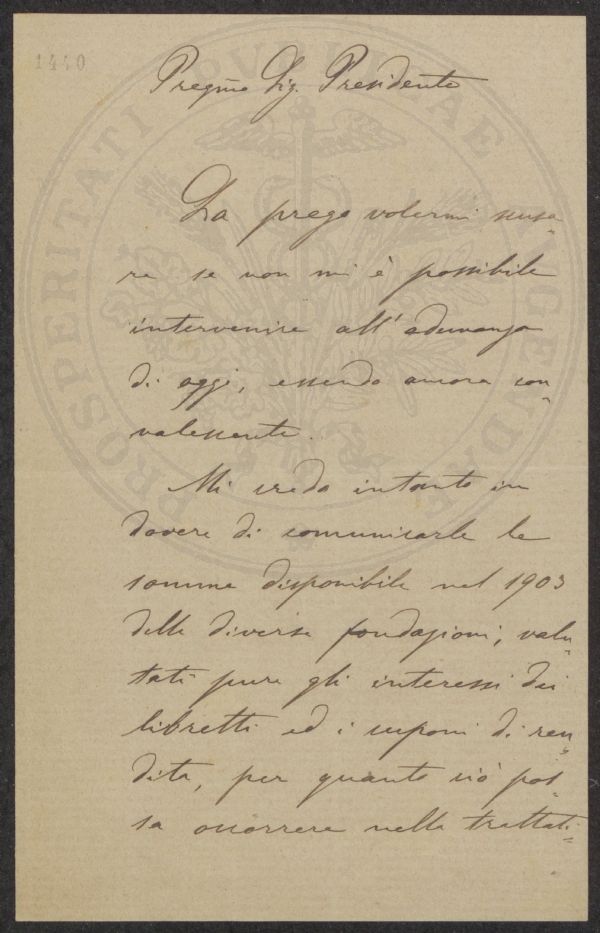 1440
Pregmo Sig. Presidente
La prego volermi scusa=
re se non mi è possibile
intervenire all'adunanza
di oggi, essendo ancora con=
valescente.
Mi credo intanto in
dovere di comunicarle le
somme disponibili nel 1903
delle diverse fondazioni, valu=
tati pure gli interessi dei
libretti ed i cuponi di ren=
dita, per quanto ciò pos=
sa occorrere nelle trattati=
PROSPERITATI PVBLICAE AVGENDAE